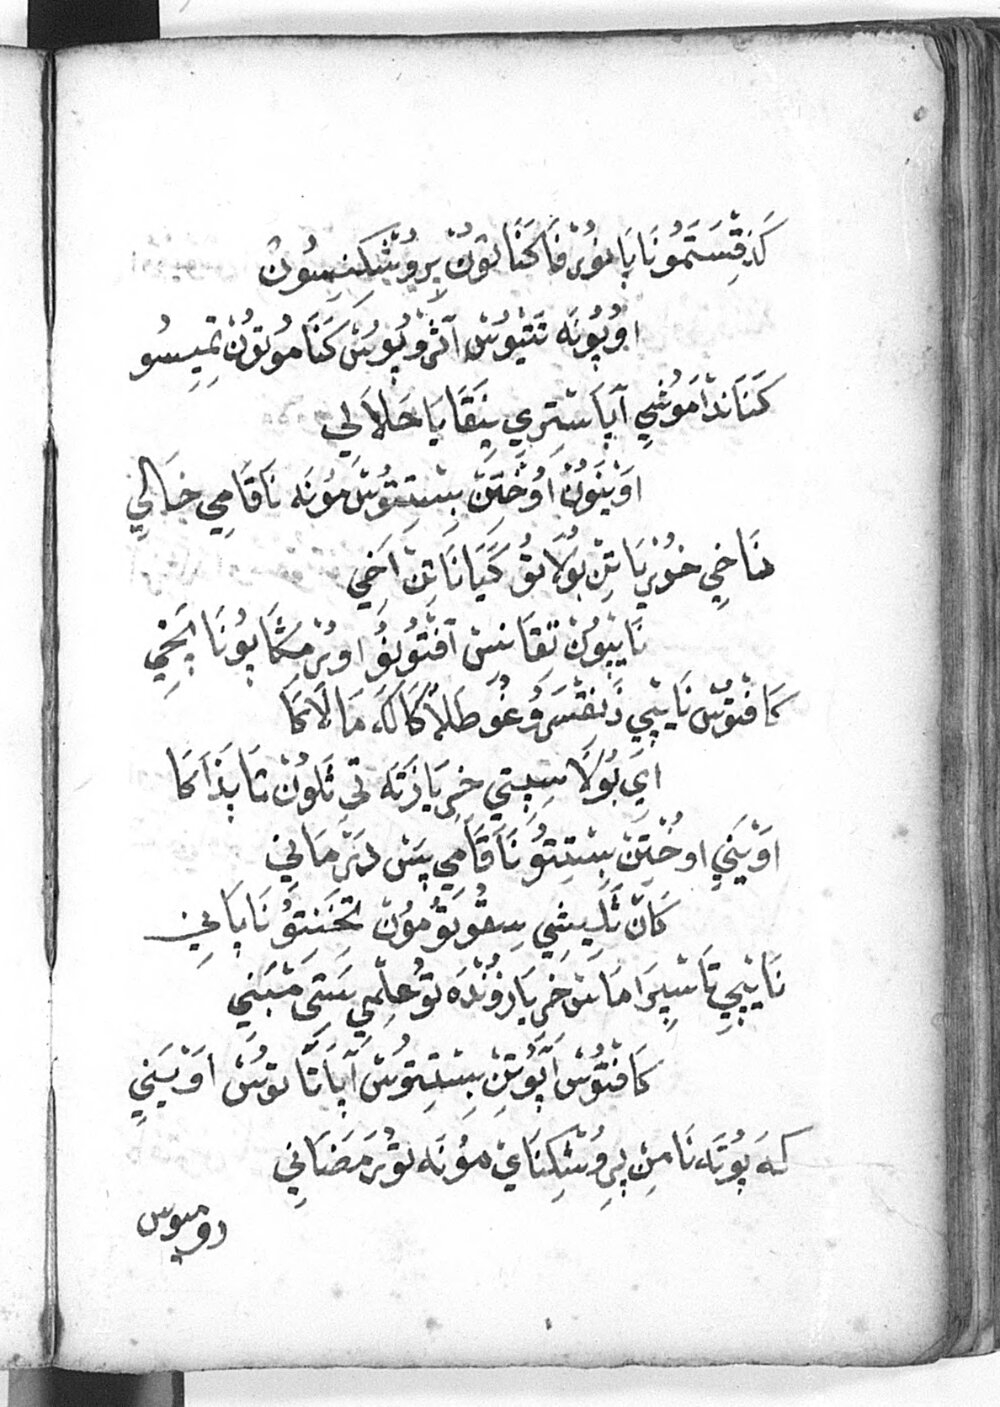 كَذِقِسَتَمُونَا پَانُوُرْ فَاكَنَاتُونْ پِرُوُشْكِنِسُونْ
اوُپُونَه تَتِيُوسْ آثْرُوپُوُسْ كَنَا مُوتُونْ تِمِيسُو
كَنَانْدَامَوُشِي آپَاسْتِرِي پِنَقَايَا حَلَالِي
اَوْنِيَونْ اوُخْتِنْ پِسْتِتُوسْ مُونَه نَاقَامِي خَالِي
نَاخِي خُوُزْيَاتِنْ پُولَاتُو كَيَانَاتِنْ اَخِي
نَايْپُونْ تَقَانِسْ آفْتُونُو اوُرْمِكَاپُونَا اِپْخِي
كَافْتُوسْ نَايْپِي ذَنِفْسَرُوغُو طَلَاكَاكَه مَالَاكَا
اَيَپُولَا سِپِتِي خِرِيَازَتَه تِي ثَلُونْ تَاپَذَاكَا
اَوْنِيَنِي اوُخْتِنْ پِسْتِتُو نَاقَامِي پِسْ دَرْمَانِي
كَانْ ثَلِيشِي سِقُوتُومُونْ تِخَنِتُو نَاپَانِي
نَايْپِي تَاسْپِرَامَاسْ خِرِيَازُونْدَه تُو عِلْمِي سَتِي مَنِي
كَافْتُوسْ آپُوتِنْ پِسْتِتُوسْ آپَاتَاتُوسْ اَوْنِيَنِي
كَه پُوتَه نَامِنْ پِرُوُشْكِنَايْ مُونَه تُو رَمَضَانِي
رومیوس